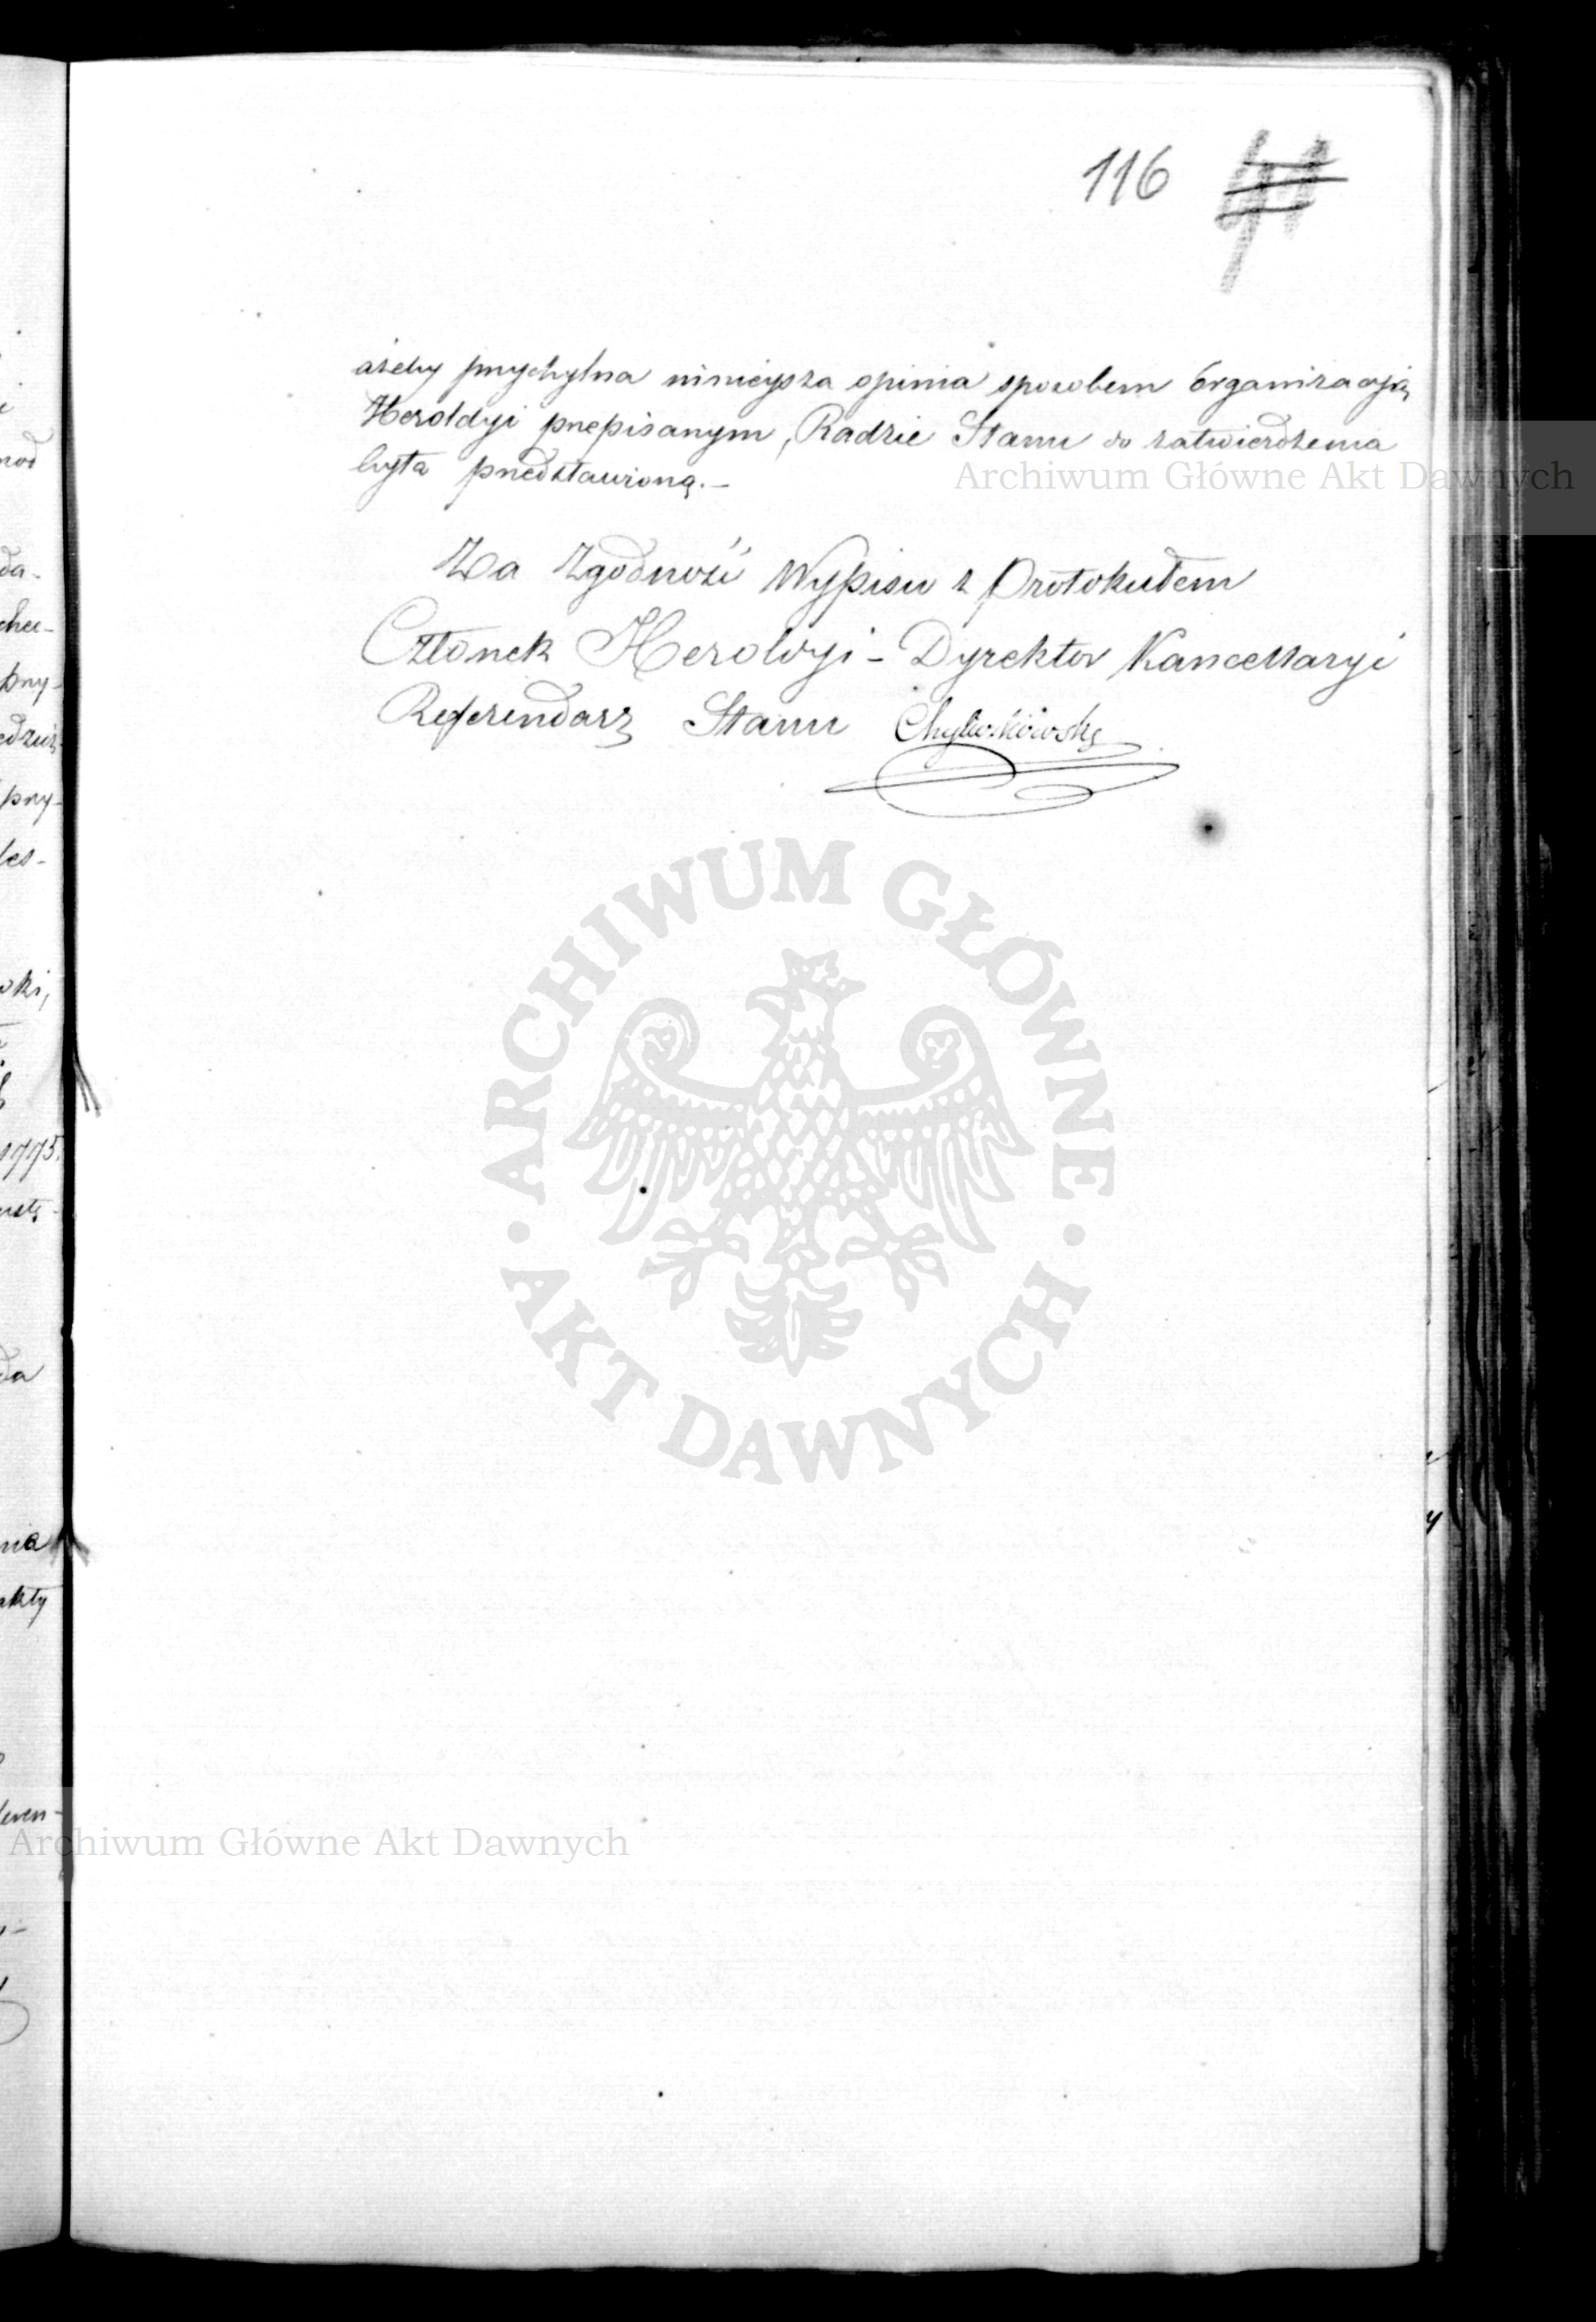 116
ażeby przychylna ninieysza opinia sposobem Organizacyią
Heroldyi przepisanym, Radzie Stanu do zatwierdzenia
była przedstawioną.–
Za Zgodność Wypisu z Protokułem
Członek Heroldyi – Dyrektor Kancellaryi
Referendarz Stanu
Archiwum Główne Akt Dawnych
ARCHIWUM GŁÓWNE
· AKT DAWNYCH ·
Archiwum Główne Akt Dawnych
1775.